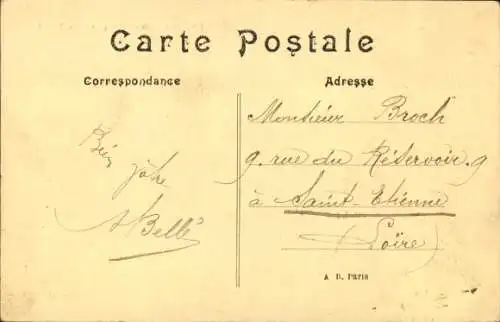 Carte Postale
Correspondance
Adresse
Bien
A Bellé
Monsieur Broch
9. rue du Réservoir. 9
à Saint-Etienne
(Loire)
A D. PARIS